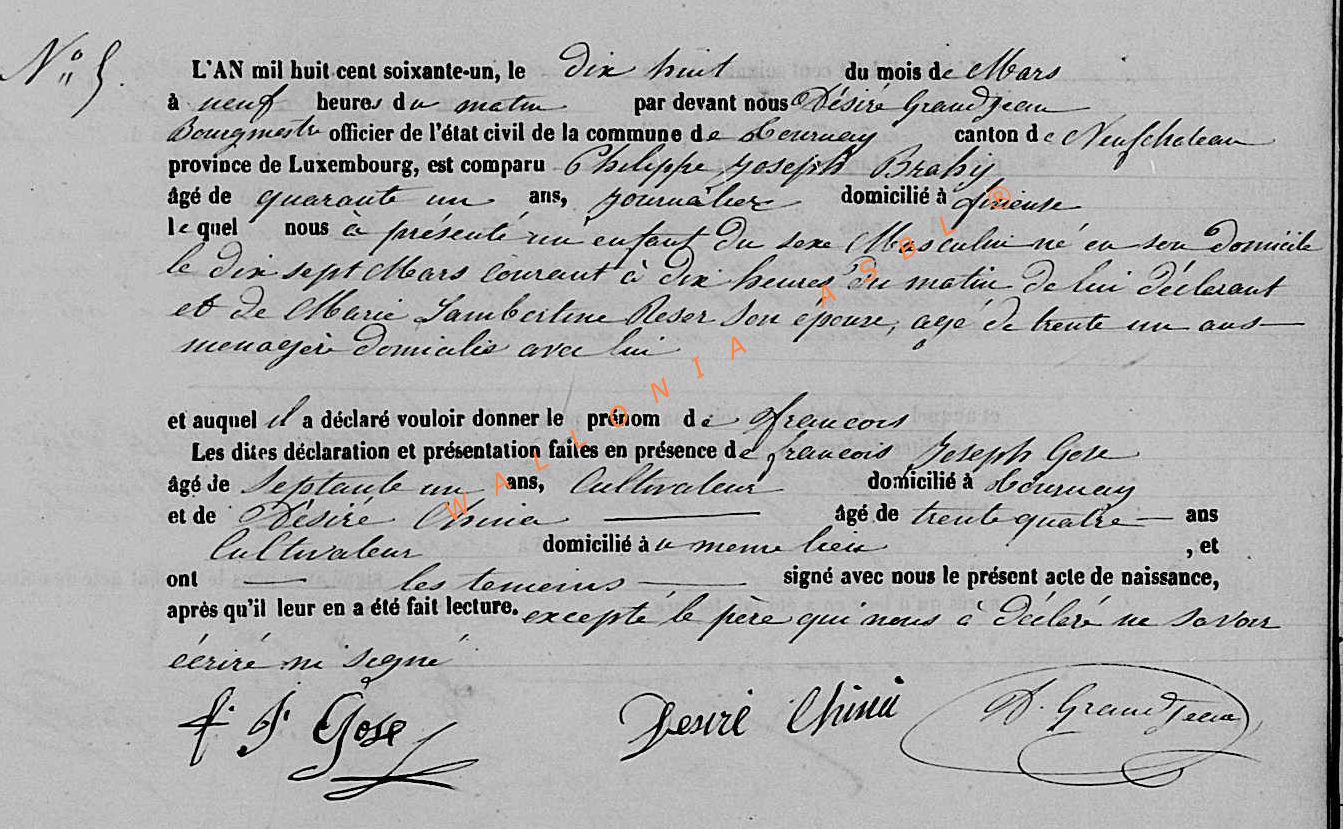 N° 5.
L'AN mil huit cent soixante-un, le dix huit du mois de Mars
à neuf heures du matin par devant nous Désiré Grandjean
Bourgmestre officier de l'état civil de la commune de Tournay canton de Neufchateau
province de Luxembourg, est comparu Philippe Joseph Brahy
âgé de quarante un ans, journalier domicilié à
lequel nous à présenté un enfant du sexe Masculin né en son domicile
le dix sept Mars courant à dix heures du matin de lui déclarant
et de Marie Lambertine Reser son épouse, agé de trente un ans
menagère domicilié avec lui
et auquel il a déclaré vouloir donner le prénom de francois
Les dites déclaration et présentation faites en présence de francois Joseph Gose
âgé de Septante un ans, Cultivateur domicilié à Tournay
et de Désiré Chinia âgé de trente quatre ans
Cultivateur domicilié à u meme lieu , et
ont les temoins signé avec nous le présent acte de naissance,
après qu'il leur en a été fait lecture. excepté le père qui nous a déclaré ne savoir
écriré ni signé
f. J. Gose Desiré Chinia D. Grandjean
WALLONIA ASBL ®